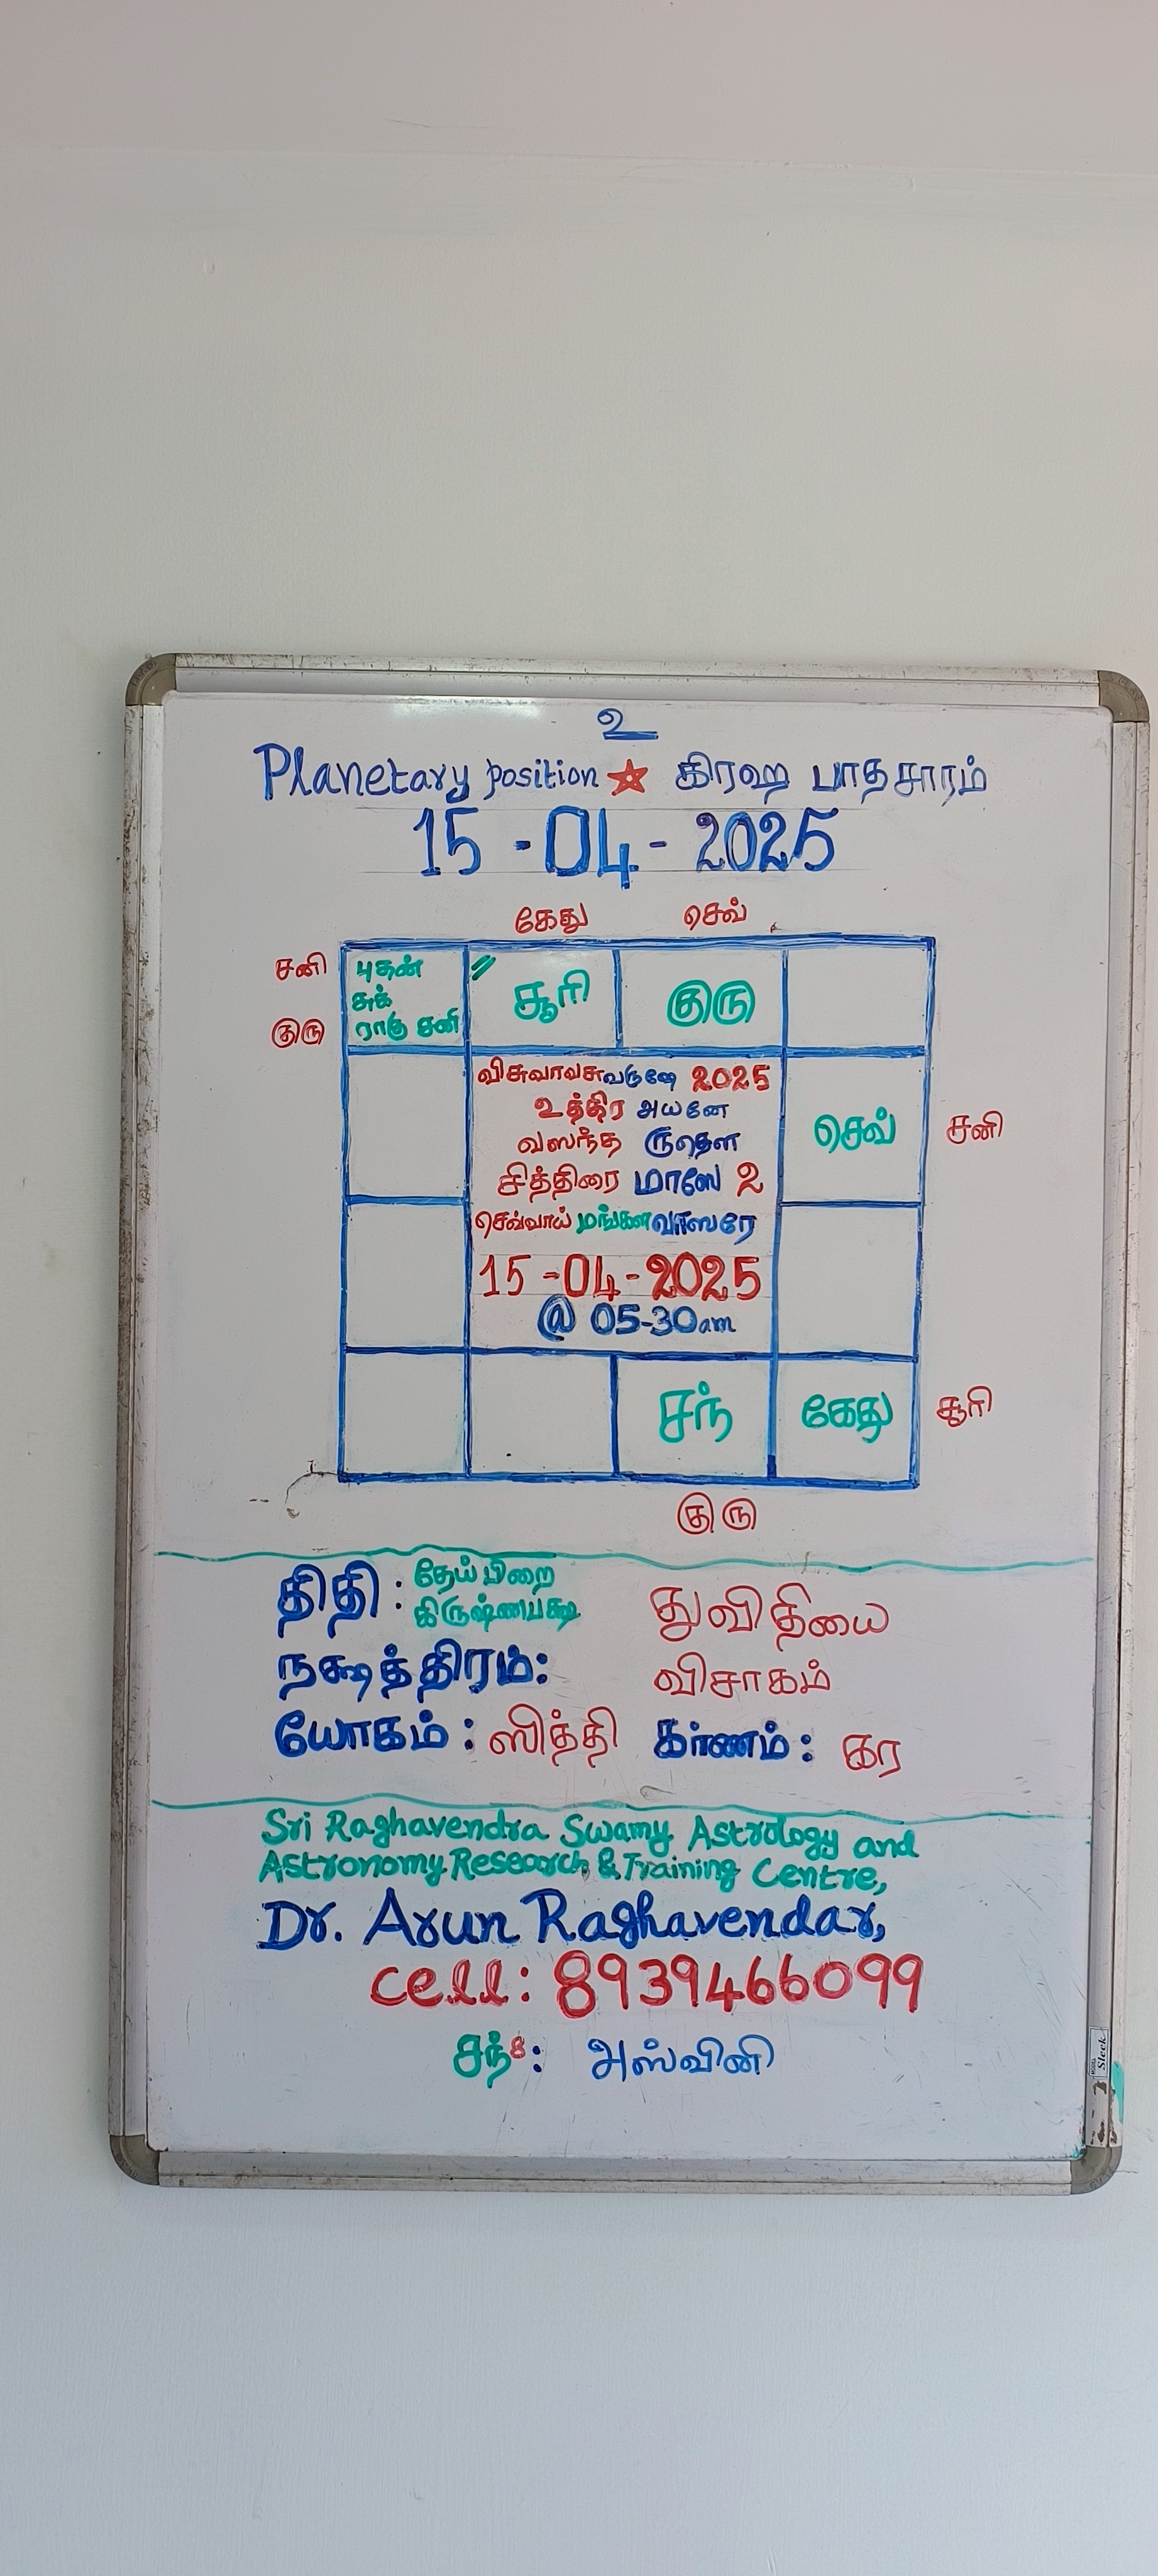 உ
Planetary position ☆ கிரஹ பாதசாரம்
15-04-2025
கேது செவ்
சனி புதன் சூரி குரு
சுக்
குரு ராகு சனி
விசுவாவசு வருஷே 2025
உத்திர அயனே
வஸந்த ருதௌ
செவ் சனி
சித்திரை மாஸே 2
செவ்வாய் மங்கள வாஸரே
15-04-2025
@ 05-30am
சந் கேது சூரி
குரு
திதி : தேய்பிறை
கிருஷ்ணபக்ஷ துவிதியை
நக்ஷத்திரம்: விசாகம்
யோகம் : ஸித்தி கர்ணம் : கர
Sri Raghavendra Swamy Astrology and
Astronomy Research & Training Centre,
Dr. Arun Raghavendar,
cell: 8939466099
சந்8: அஸ்வினி
Sleek